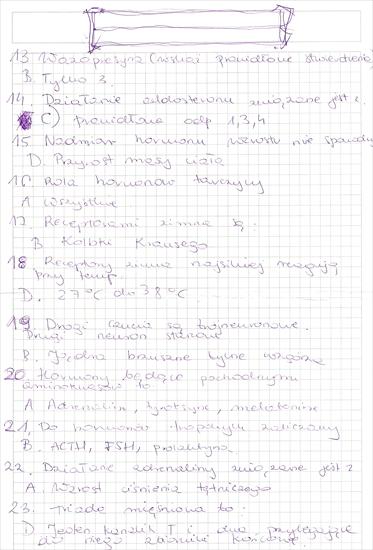 13. Wazopresyna (wskaż prawidłowe stwierdzenia)
B. Tylko 3.
14. Działanie aldosteronu związane jest z
C) prawidłowe odp 1,3,4
15. Nadmiar hormonu wzrostu nie spowoduje
D. Przyrost masy ciała
16. Rola hormonów tarczycy
A wszystkie
17. Receptorami zimna są:
B Kolbki Krausego
18 Receptory zimna najsilniej reagują
przy temp.
D. 27°C do 38°C
19. Drogi czucia są trójneuronowe.
Drugi neuron stanowi
B. Jądra brzuszne tylne wzgórza
20. Hormony będące pochodnymi
aminokwasów to
A Adrenalina, tyroksyna, melatonina
21. Do hormonów tropowych zaliczamy
B. ACTH, FSH, prolaktyna
22. Działanie adrenaliny związane jest z
A. Wzrost ciśnienia tętniczego
23. Triada mięśniowa to:
D Jeden kanalik T i dwa przylegające
do niego zbiorniki końcowe.